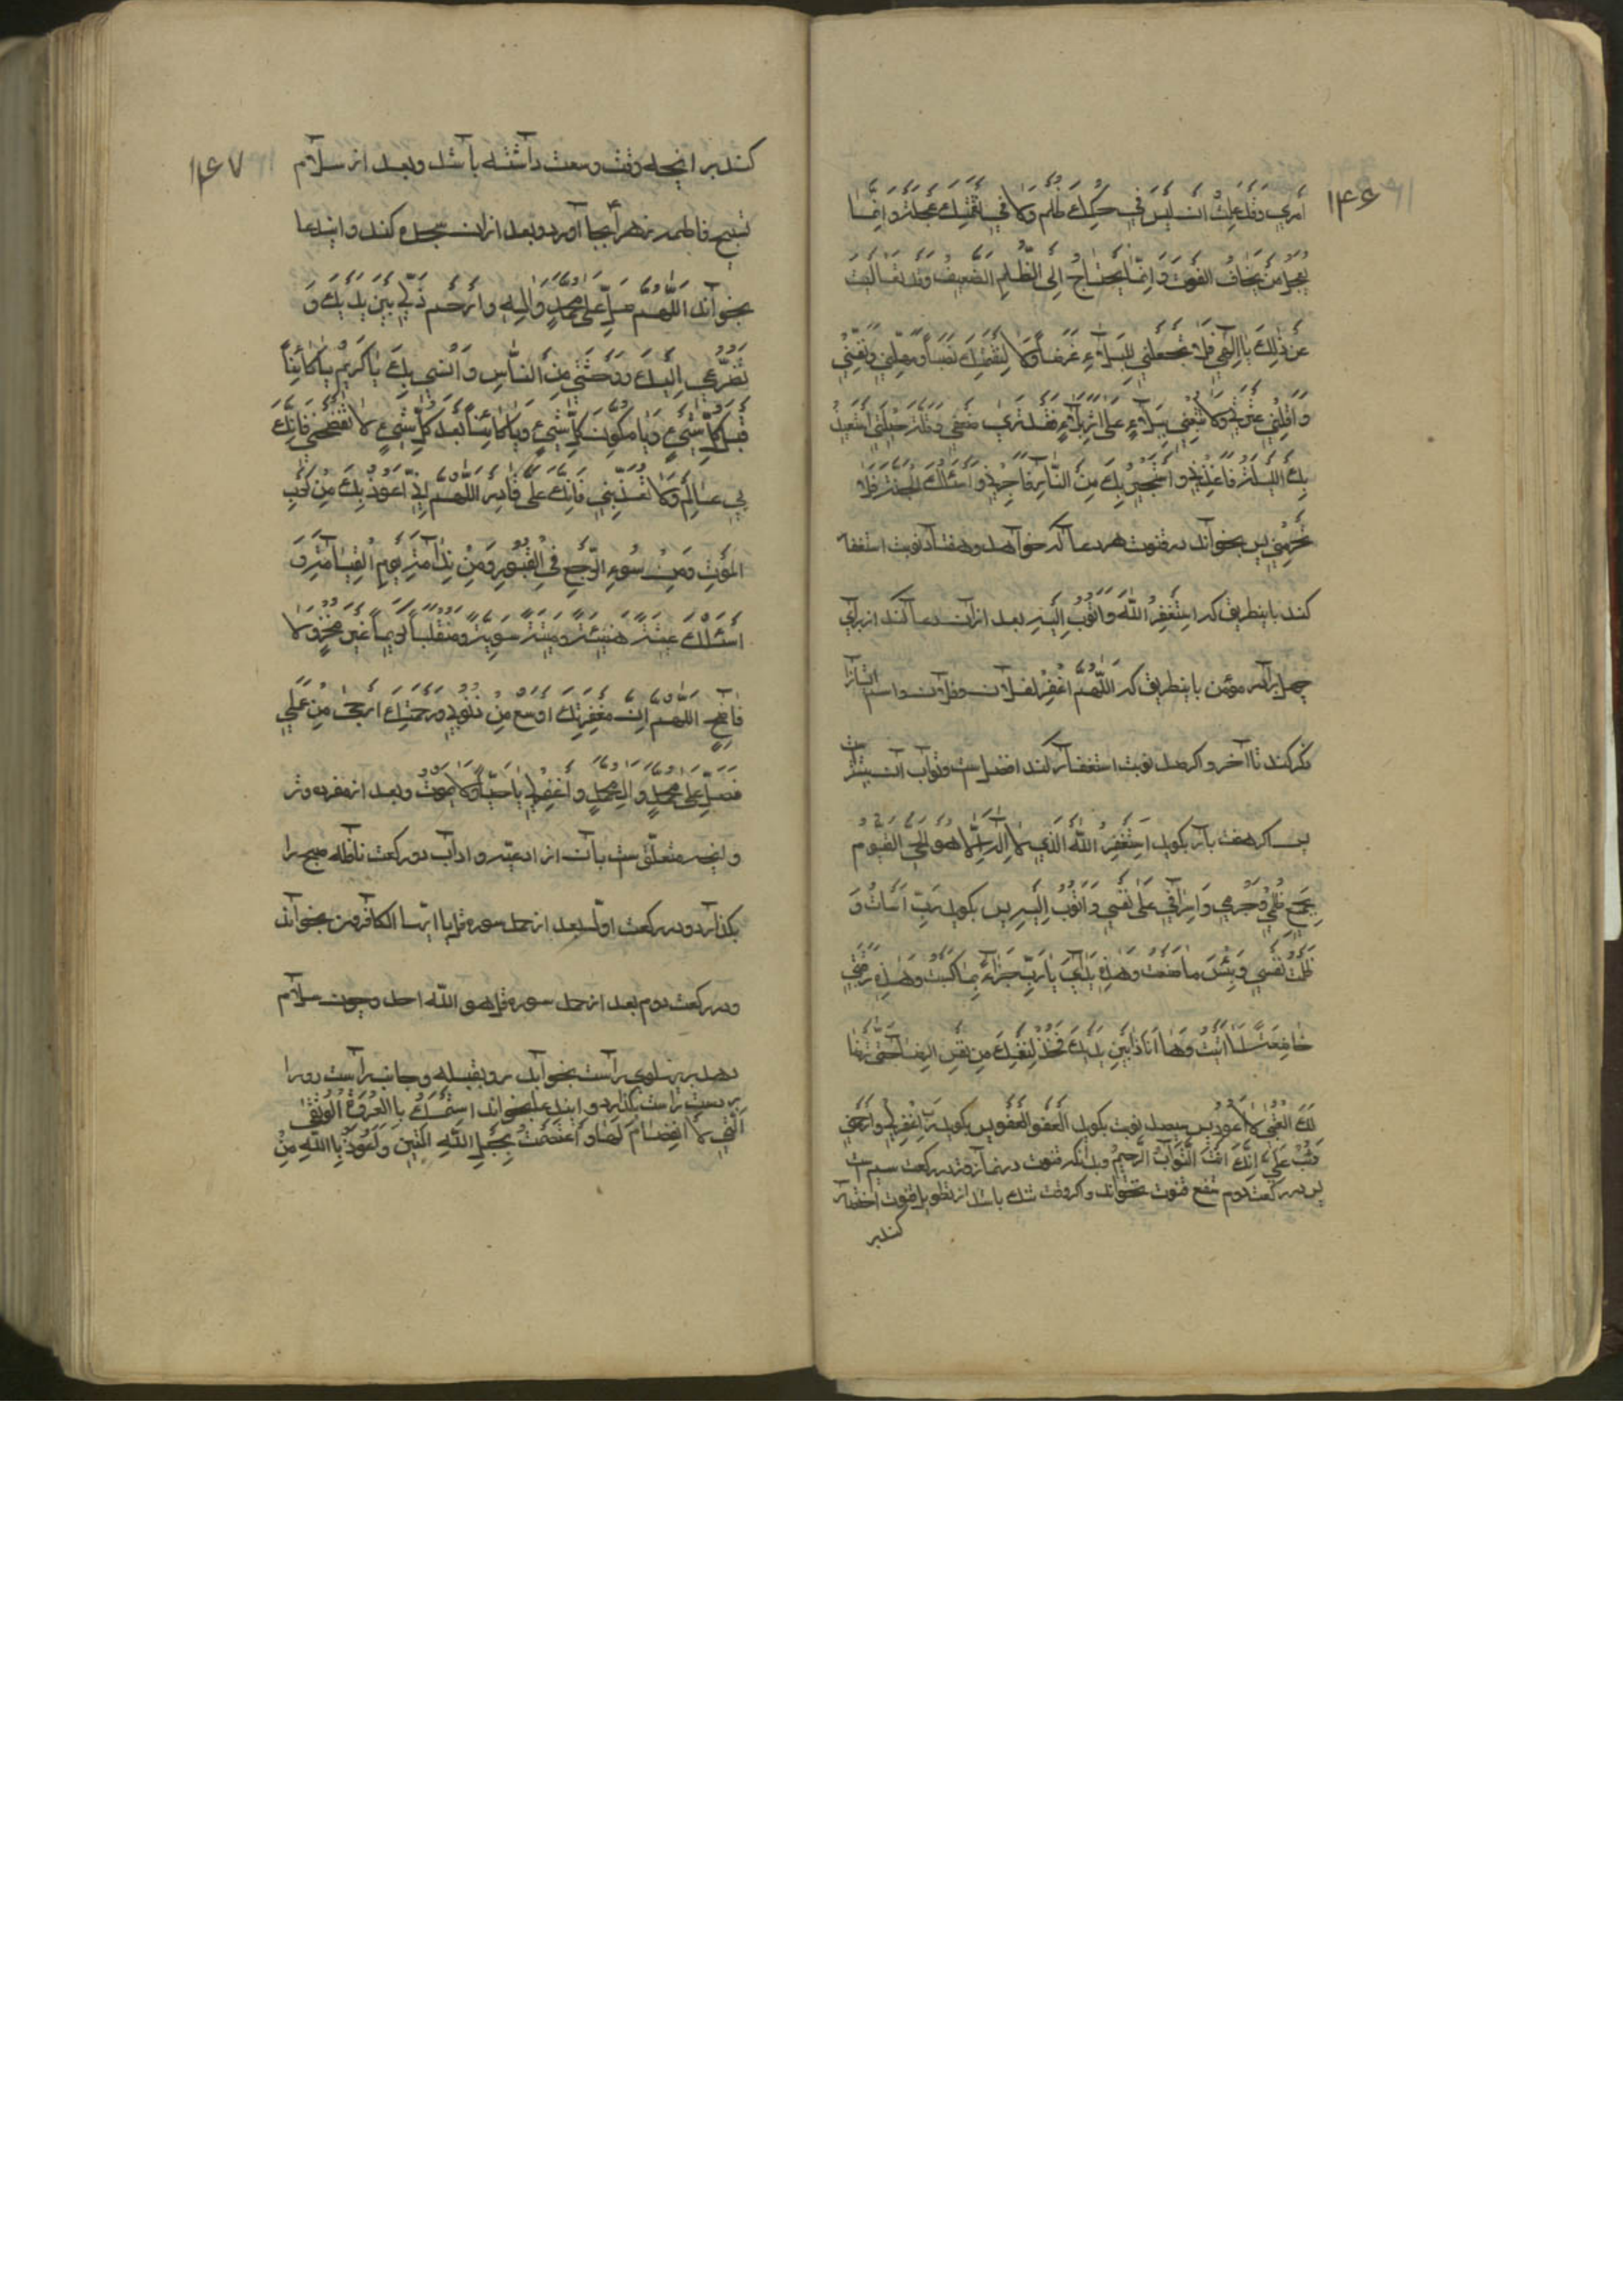 ۱۴۶
أمري وقد علمت ان ليس في حكمك ظلم ولا في نقمتك عجلة وانما
يعجل من يخاف الفوت وَانما يحتاج الى الظلم الضعيف وقد تعاليت
عن ذلك يا الهي فلا تجعلني للبلاء غرضاً ولا لنقمتك نصباً ومهلني ونفسني
واقلني عثرتي ولا تتبعني ببلاء على اثر بلاء فقد ترى ضعفي وقلة حيلتي استعيذ
بك الليلة فاعذني واستجير بك من النار فاجرني واسئلك الجنة فلا
تحرمني پس بخواند در قنوت هر دعا که خواهد و هفتاد نوبت استغفار
کند باینطریق که استغفر الله واتوب اليه بعد ازان دعا کند از برای
چهل برادر مؤمن باینطریق که اللهم اغفر لفلان وفلان واسم ایشانرا
ذکر کند تا آخر و اکر صد نوبت استغفار کند افضلست و ثواب ان بیشتر است
پس اکر هفت بار بکوید استغفر الله الذي لا اله الا هو الحي القيوم
بجميع ظلمي وجرمي واسرافي على نفسي واتوب اليه پس بکوید رب اسأت و
ظلمت نفسي وبئس ما صنعت وهذه يداي يا رب جزاء بما كسبت وهذه رقبتي
خاضعة لما اتيت وها انا ذا بين يديك فخذ لنفسك من نفسي الرضا حتى ترضا
لك العتبى لا اعود پس سیصد نوبت بکوید العفو العفو پس بکوید رب اغفر لي وارحمني
وتب علي انك انت التواب الرحيم وبدانکه قنوت در نماز وتر در رکعت سیم است
پس در رکعت دوم شفع قنوت نخواند و اکر وقت تنك باشد از تطویل قنوت اختصار
کند بر
۱۴۷
کند بر انچه وقت وسعت داشته باشد و بعد از سلام
تسبیح فاطمه زهرا بجا آورد و بعد ازان سجده کند و ایندعا
بخواند اللهم صل على محمد واله وارحم ذلي بين يديك و
تضرعي اليك ووحشتي من الناس وانسي بك يا كريم يا كائناً
قبل كل شيء ويا مكون كل شيء ويا كائناً بعد كل شيء لا تفضحني فانك
بي عالم ولا تعذبني فانك علي قادر اللهم اني اعوذ بك من كرب
الموت ومن سوء المرجع في القبور ومن ندامة يوم القيامة و
اسئلك عيشة هنيئة وميتة سوية ومنقلباً كريماً غير مخز ولا
فاضح اللهم ان مغفرتك اوسع من ذنوبي ورحمتك ارجى من عملي
فصل على محمد وال محمد واغفر لي يا حياً لا يموت و بعد از مفرده وتر
و انچه متعلق ست بآن از ادعیه و اداب دو رکعت نافله صبح را
بکذارد و در رکعت اول بعد از حمد سوره قل یا ایها الکافرون بخواند
و در رکعت دوم بعد از حمد سوره قل هو الله احد و چون سلام
دهد بر پهلوی راست بخوابد رو بقبله و جانب راست رو را
بر دست راست کذارد و ایندعا بخواند استمسكت بالعروة الوثقى
التي لا انفصام لها واعتصمت بحبل الله المتين واعوذ بالله من